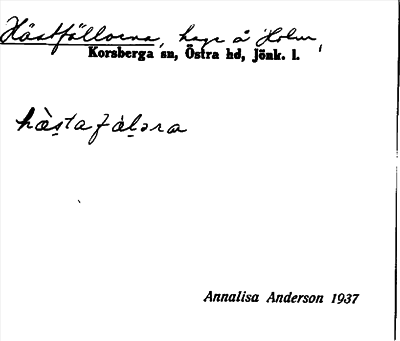 Hästfållorna, hage å Holm,
Korsberga sn, Östra hd, Jönk. l.
hàs̱tafál̠əra
Annalisa Anderson 1937